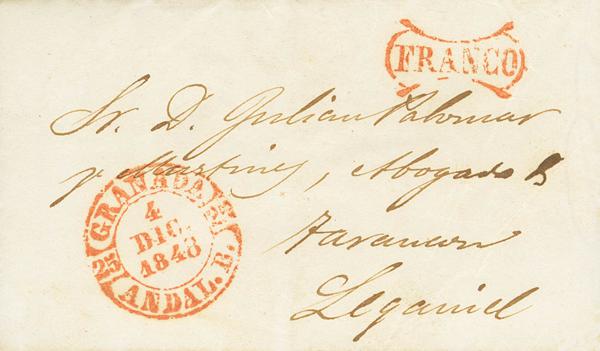 FRANCO
Sr. D. Julian Palomar
y Martinez, Abogado
GRANADA
25 25
4
DIC.
1848
ANDAL. B.
Tarancon
Leganiel